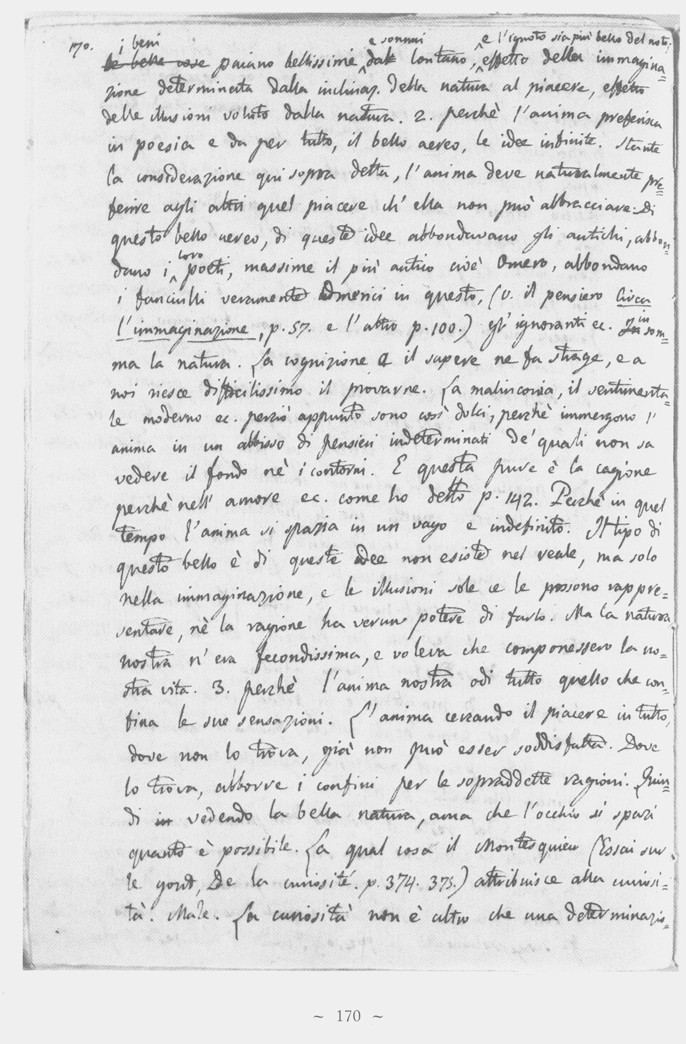 170. i beni e sommi e l'ignoto sia più bello del noto;
le belle cose paiano bellissime dal lontano, effetto della immagina=
zione determinata dalla inclinaz. della natura al piacere, effetto
delle illusioni voluto dalla natura. 2. perchè l'anima preferisca
in poesia e da per tutto, il bello aereo, le idee infinite. Stante
la considerazione qui sopra detta, l'anima deve naturalmente pre=
ferire agli altri quel piacere ch'ella non può abbracciare. Di
questo bello aereo, di queste idee abbondavano gli antichi, abbon=
dano i loro poeti, massime il più antico cioè Omero, abbondano
i fanciulli veramente Omerici in questo, (v. il pensiero Circa
l'immaginazione, p. 57. e l'altro p. 100.) gl'ignoranti ec. in som=
ma la natura. La cognizione e il sapere ne fa strage, e a
noi riesce difficilissimo il provarne. La malinconia, il sentimenta=
le moderno ec. perciò appunto sono così dolci, perchè immergono l'
anima in un abbisso di pensieri indeterminati de' quali non sa
vedere il fondo nè i contorni. E questa pure è la cagione
perchè nell'amore ec. come ho detto p. 142. Perchè in quel
tempo l'anima si spazia in un vago e indefinito. Il tipo di
questo bello e di queste idee non esiste nel reale, ma solo
nella immaginazione, e le illusioni sole ce le possono rappre=
sentare, nè la ragione ha verun potere di farlo. Ma la natura
nostra n'era fecondissima, e voleva che componessero la no=
stra vita. 3. perchè l'anima nostra odi tutto quello che con=
fina le sue sensazioni. L'anima cercando il piacere in tutto,
dove non lo trova, già non può esser soddisfatta. Dove
lo trova, abborre i confini per le sopraddette ragioni. Quin=
di in vedendo la bella natura, ama che l'occhio si spazi
quanto è possibile. La qual cosa il Montesquieu (Essai sur
le gout, De la curiosité. p. 374. 375.) attribuisce alla curiosi=
tà. Male. La curiosità non è altro che una determinazio=
~ 170 ~